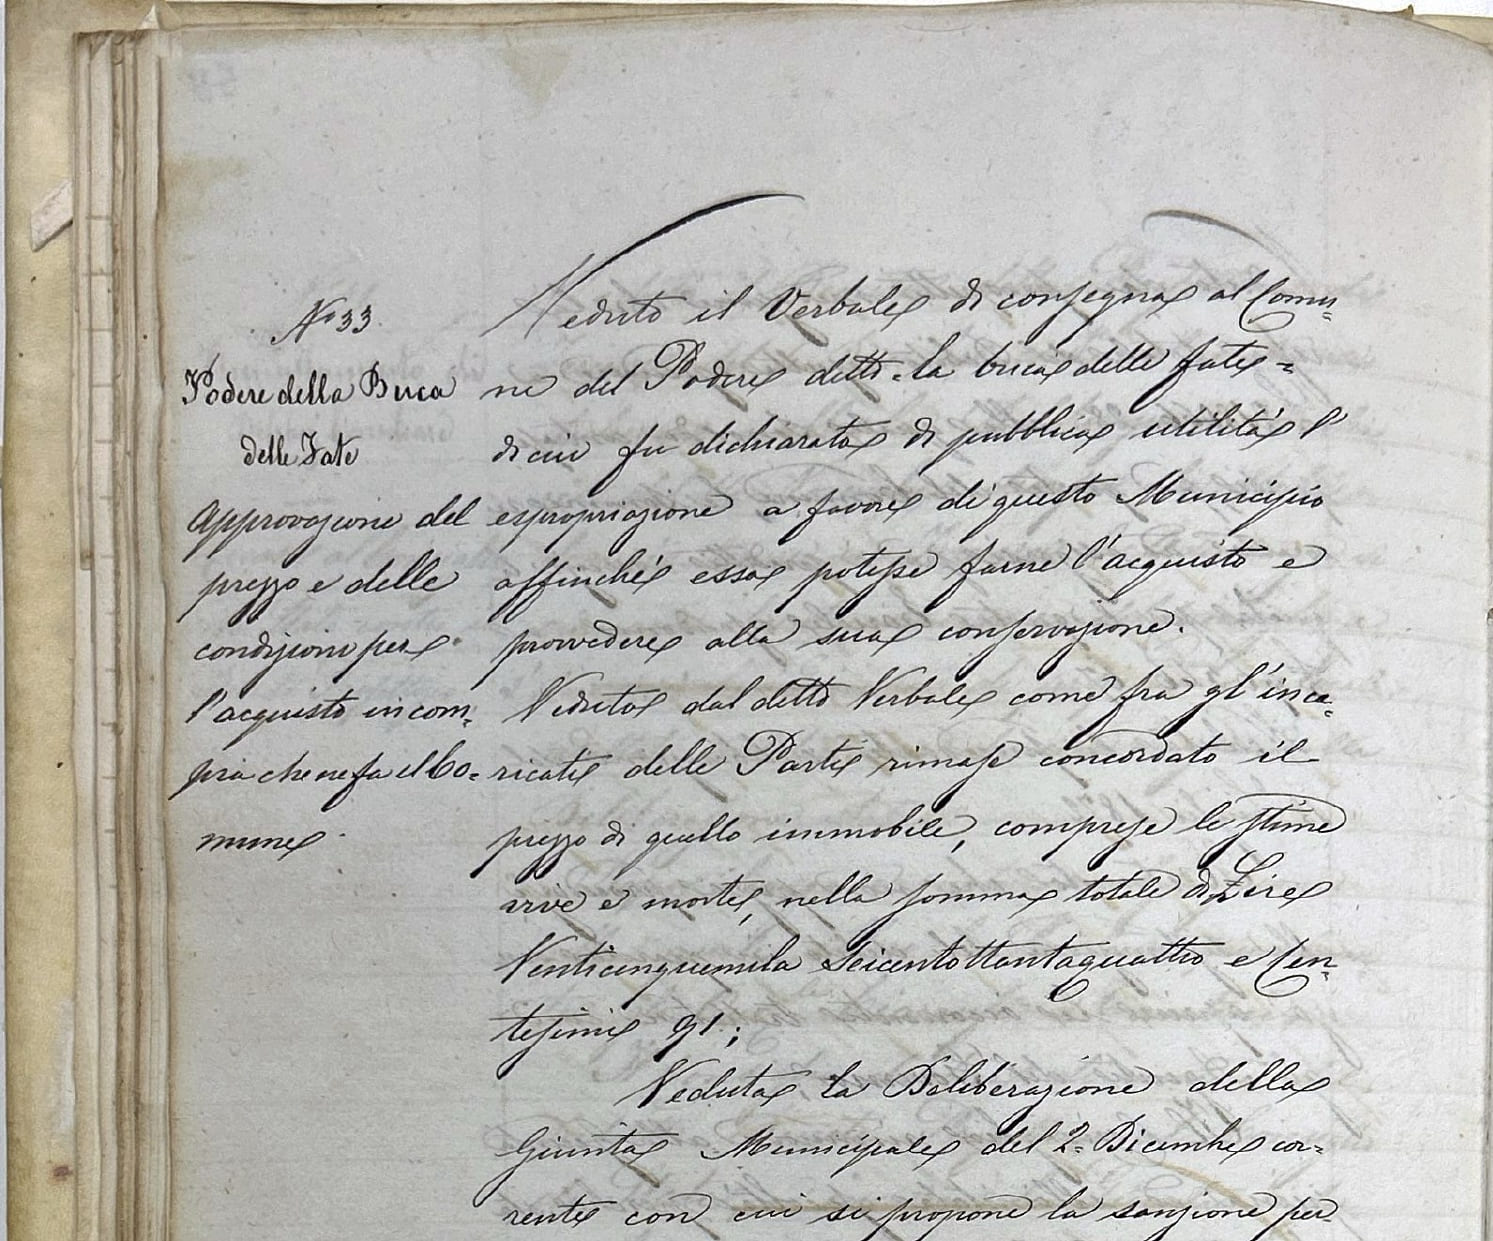 N° 33
Podere della Buca
delle Fate
Approvazione del
prezzo e delle
condizioni per
l'acquisto in com=
pra che ne fa il Co=
mune
Veduto il Verbale di consegna al Comu=
ne del Podere detto = la buca delle fate =
di cui fu dichiarata di pubblica utilità l'
espropriazione a favore di questo Municipio
affinché esso potesse farne l'acquisto e
provvedere alla sua conservazione.
Veduto dal detto Verbale come fra gl'inca=
ricati delle Parti rimase concordato il
prezzo di quello immobile, comprese le stime
vive e morte, nella somma totale di Lire
Venticinquemila Seicentottantaquattro e Cen=
tesimi 91;
Veduta la Deliberazione della
Giunta Municipale del 2= Dicembre cor=
rente con cui si propone la sanzione per